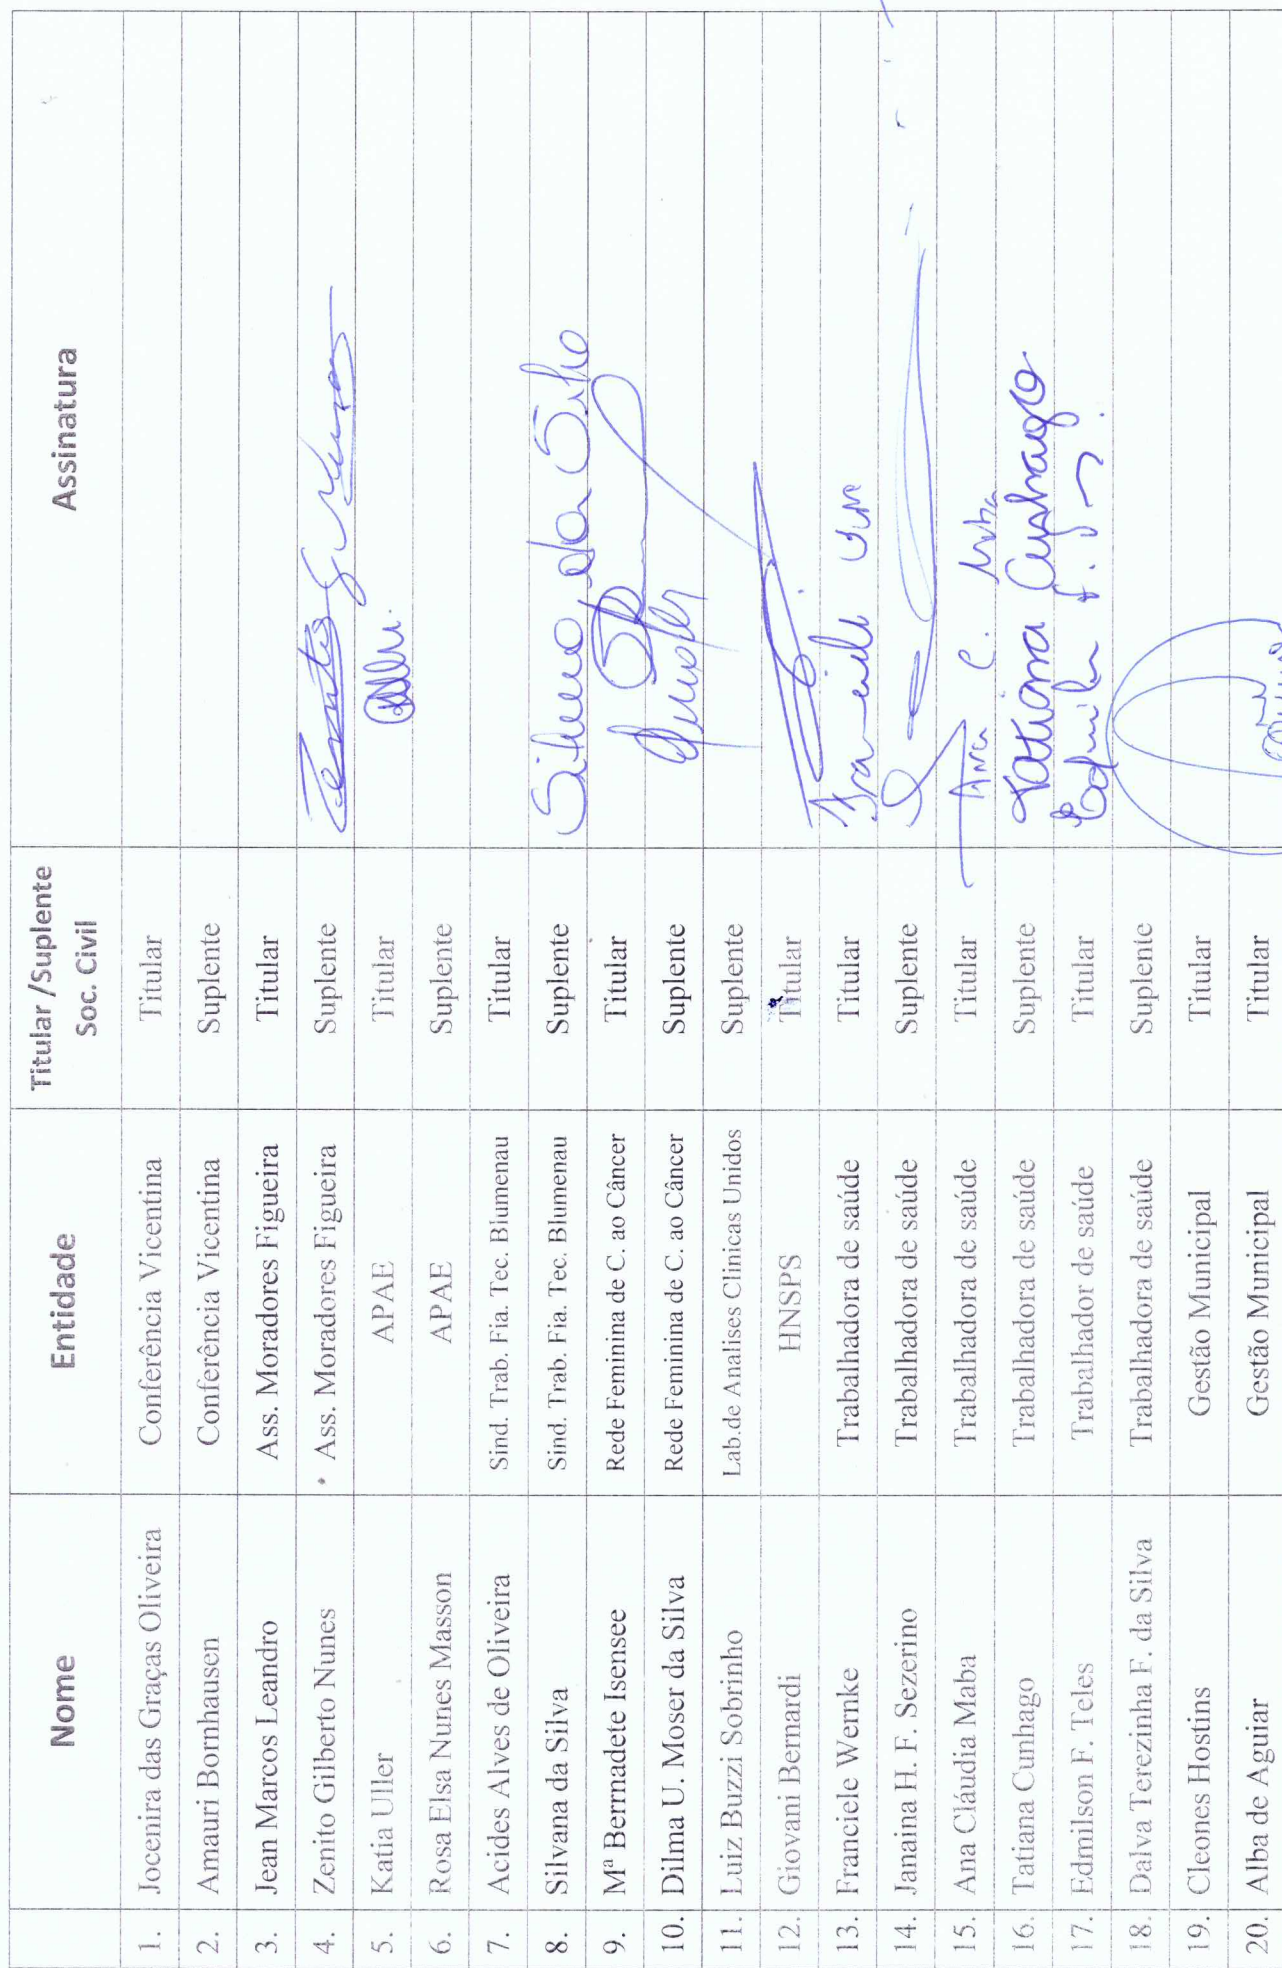 Nome Entidade Titular /Suplente Soc. Civil Assinatura
1. Jocenira das Graças Oliveira Conferência Vicentina Titular
2. Amauri Bornhausen Conferência Vicentina Suplente
3. Jean Marcos Leandro Ass. Moradores Figueira Titular
4. Zenito Gilberto Nunes Ass. Moradores Figueira Suplente
5. Katia Uller APAE Titular
6. Rosa Elsa Nunes Masson APAE Suplente
7. Acides Alves de Oliveira Sind. Trab. Fia. Tec. Blumenau Titular
8. Silvana da Silva Sind. Trab. Fia. Tec. Blumenau Suplente Silvana da Silva
9. Mª Bernadete Isensee Rede Feminina de C. ao Câncer Titular
10. Dilma U. Moser da Silva Rede Feminina de C. ao Câncer Suplente
11. Luiz Buzzi Sobrinho Lab.de Analises Clinicas Unidos Suplente
12. Giovani Bernardi HNSPS Titular
13. Franciele Wernke Trabalhadora de saúde Titular
14. Janaina H. F. Sezerino Trabalhadora de saúde Suplente
15. Ana Cláudia Maba Trabalhadora de saúde Titular Ana C. Maba
16. Tatiana Cunhago Trabalhadora de saúde Suplente Tatiana Cunhago
17. Edmilson F. Teles Trabalhador de saúde Titular
18. Dalva Terezinha F. da Silva Trabalhadora de saúde Suplente
19. Cleones Hostins Gestão Municipal Titular
20. Alba de Aguiar Gestão Municipal Titular